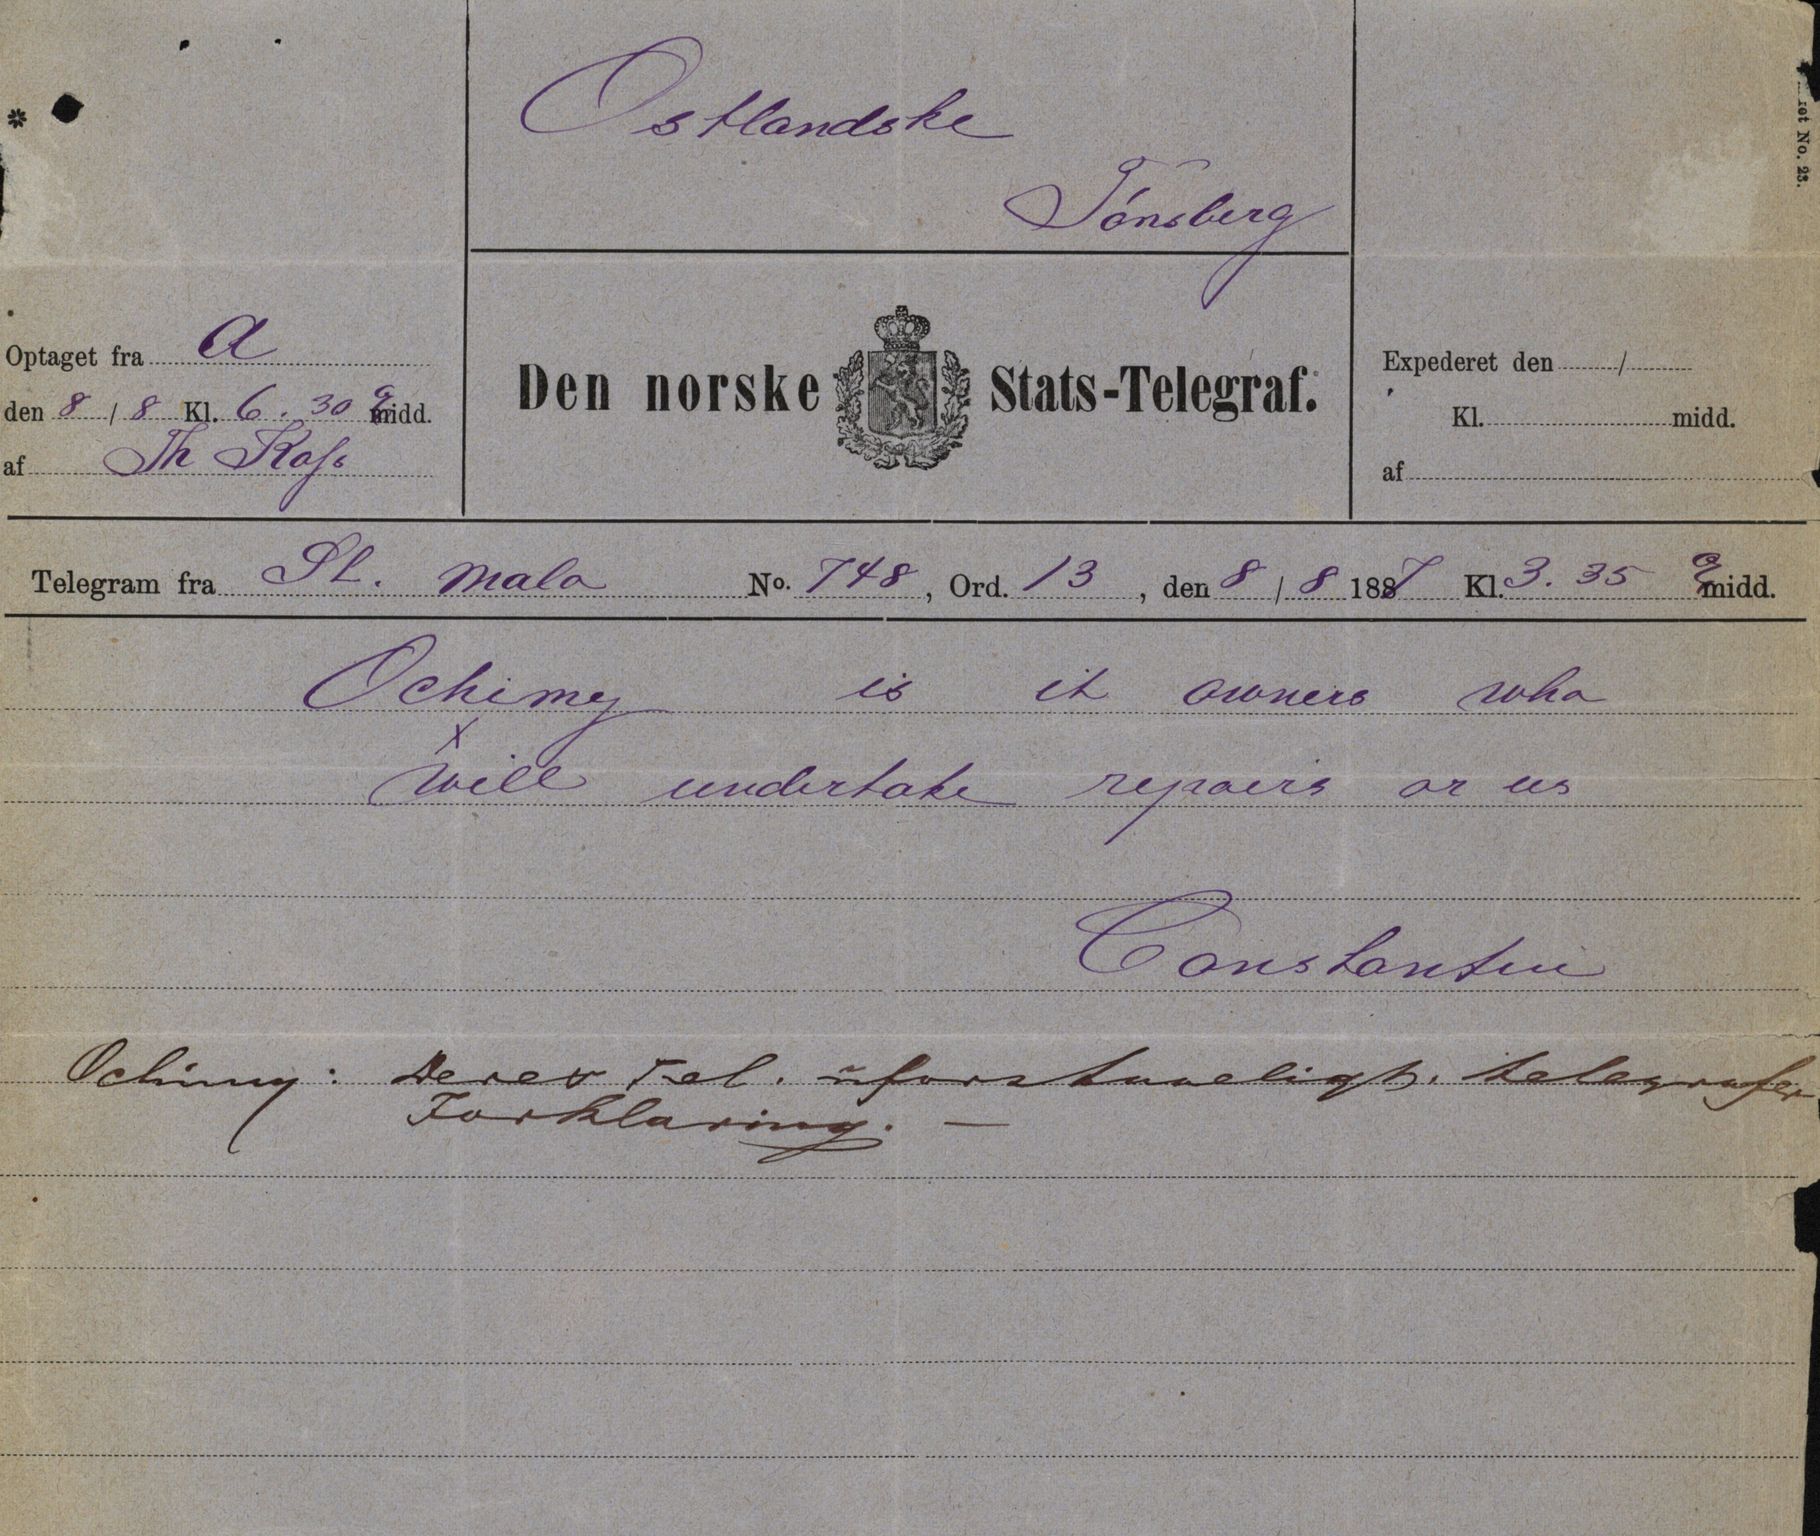 Ostlandske
Tönsberg
Optaget fra A
den 8 / 8 Kl. 6.30 midd.
af Th
Den norske Stats-Telegraf.
Expederet den /
Kl. midd.
af
No. 23.
Telegram fra St. malo No. 748, Ord. 13, den 8 / 8 1887 Kl. 3.35 midd.
Ochimy is it owners who
x
will undertake repairs or us
Constantin
Ochimy: Deres Tel. uforstaaeligt. telegrafer
Forklaring. —